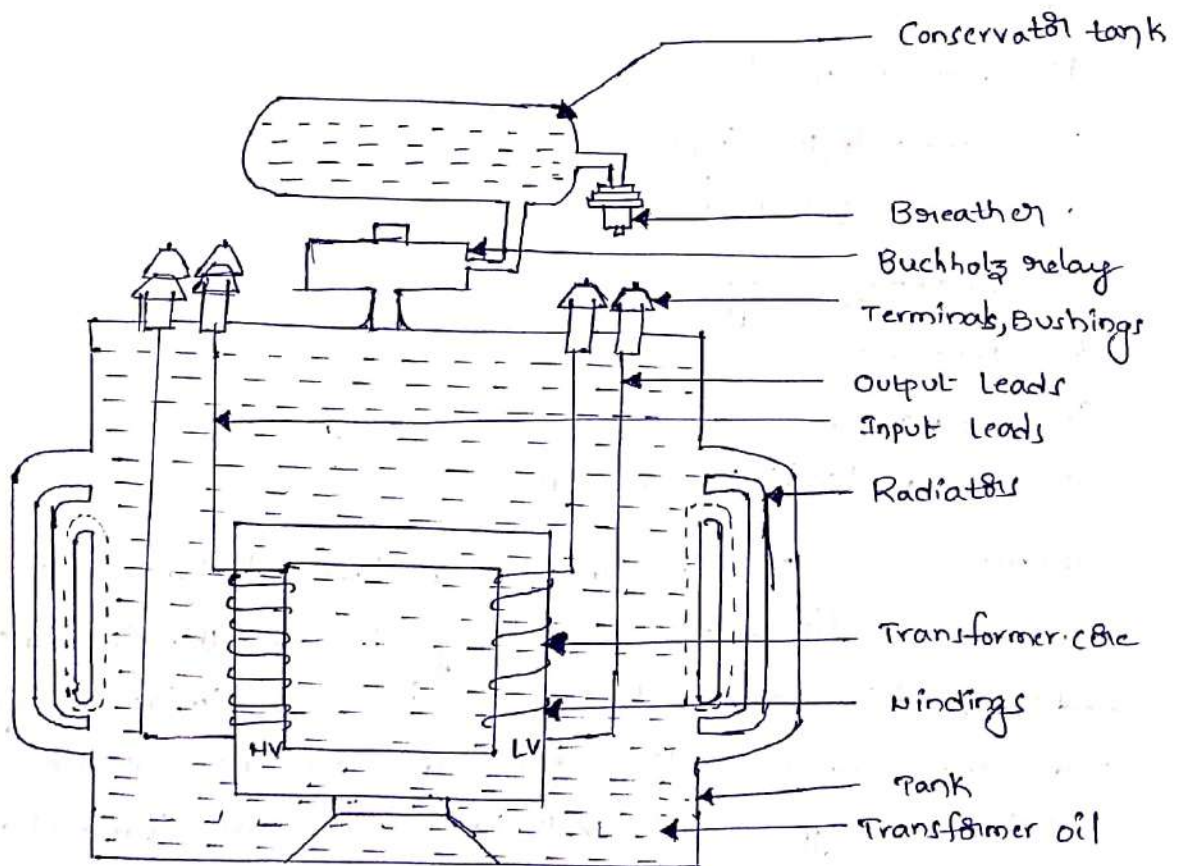 Conservator tank
Breather
Buchholz relay
Terminals, Bushings
Output leads
Input leads
Radiators
Transformer core
Windings
HV
LV
Tank
Transformer oil